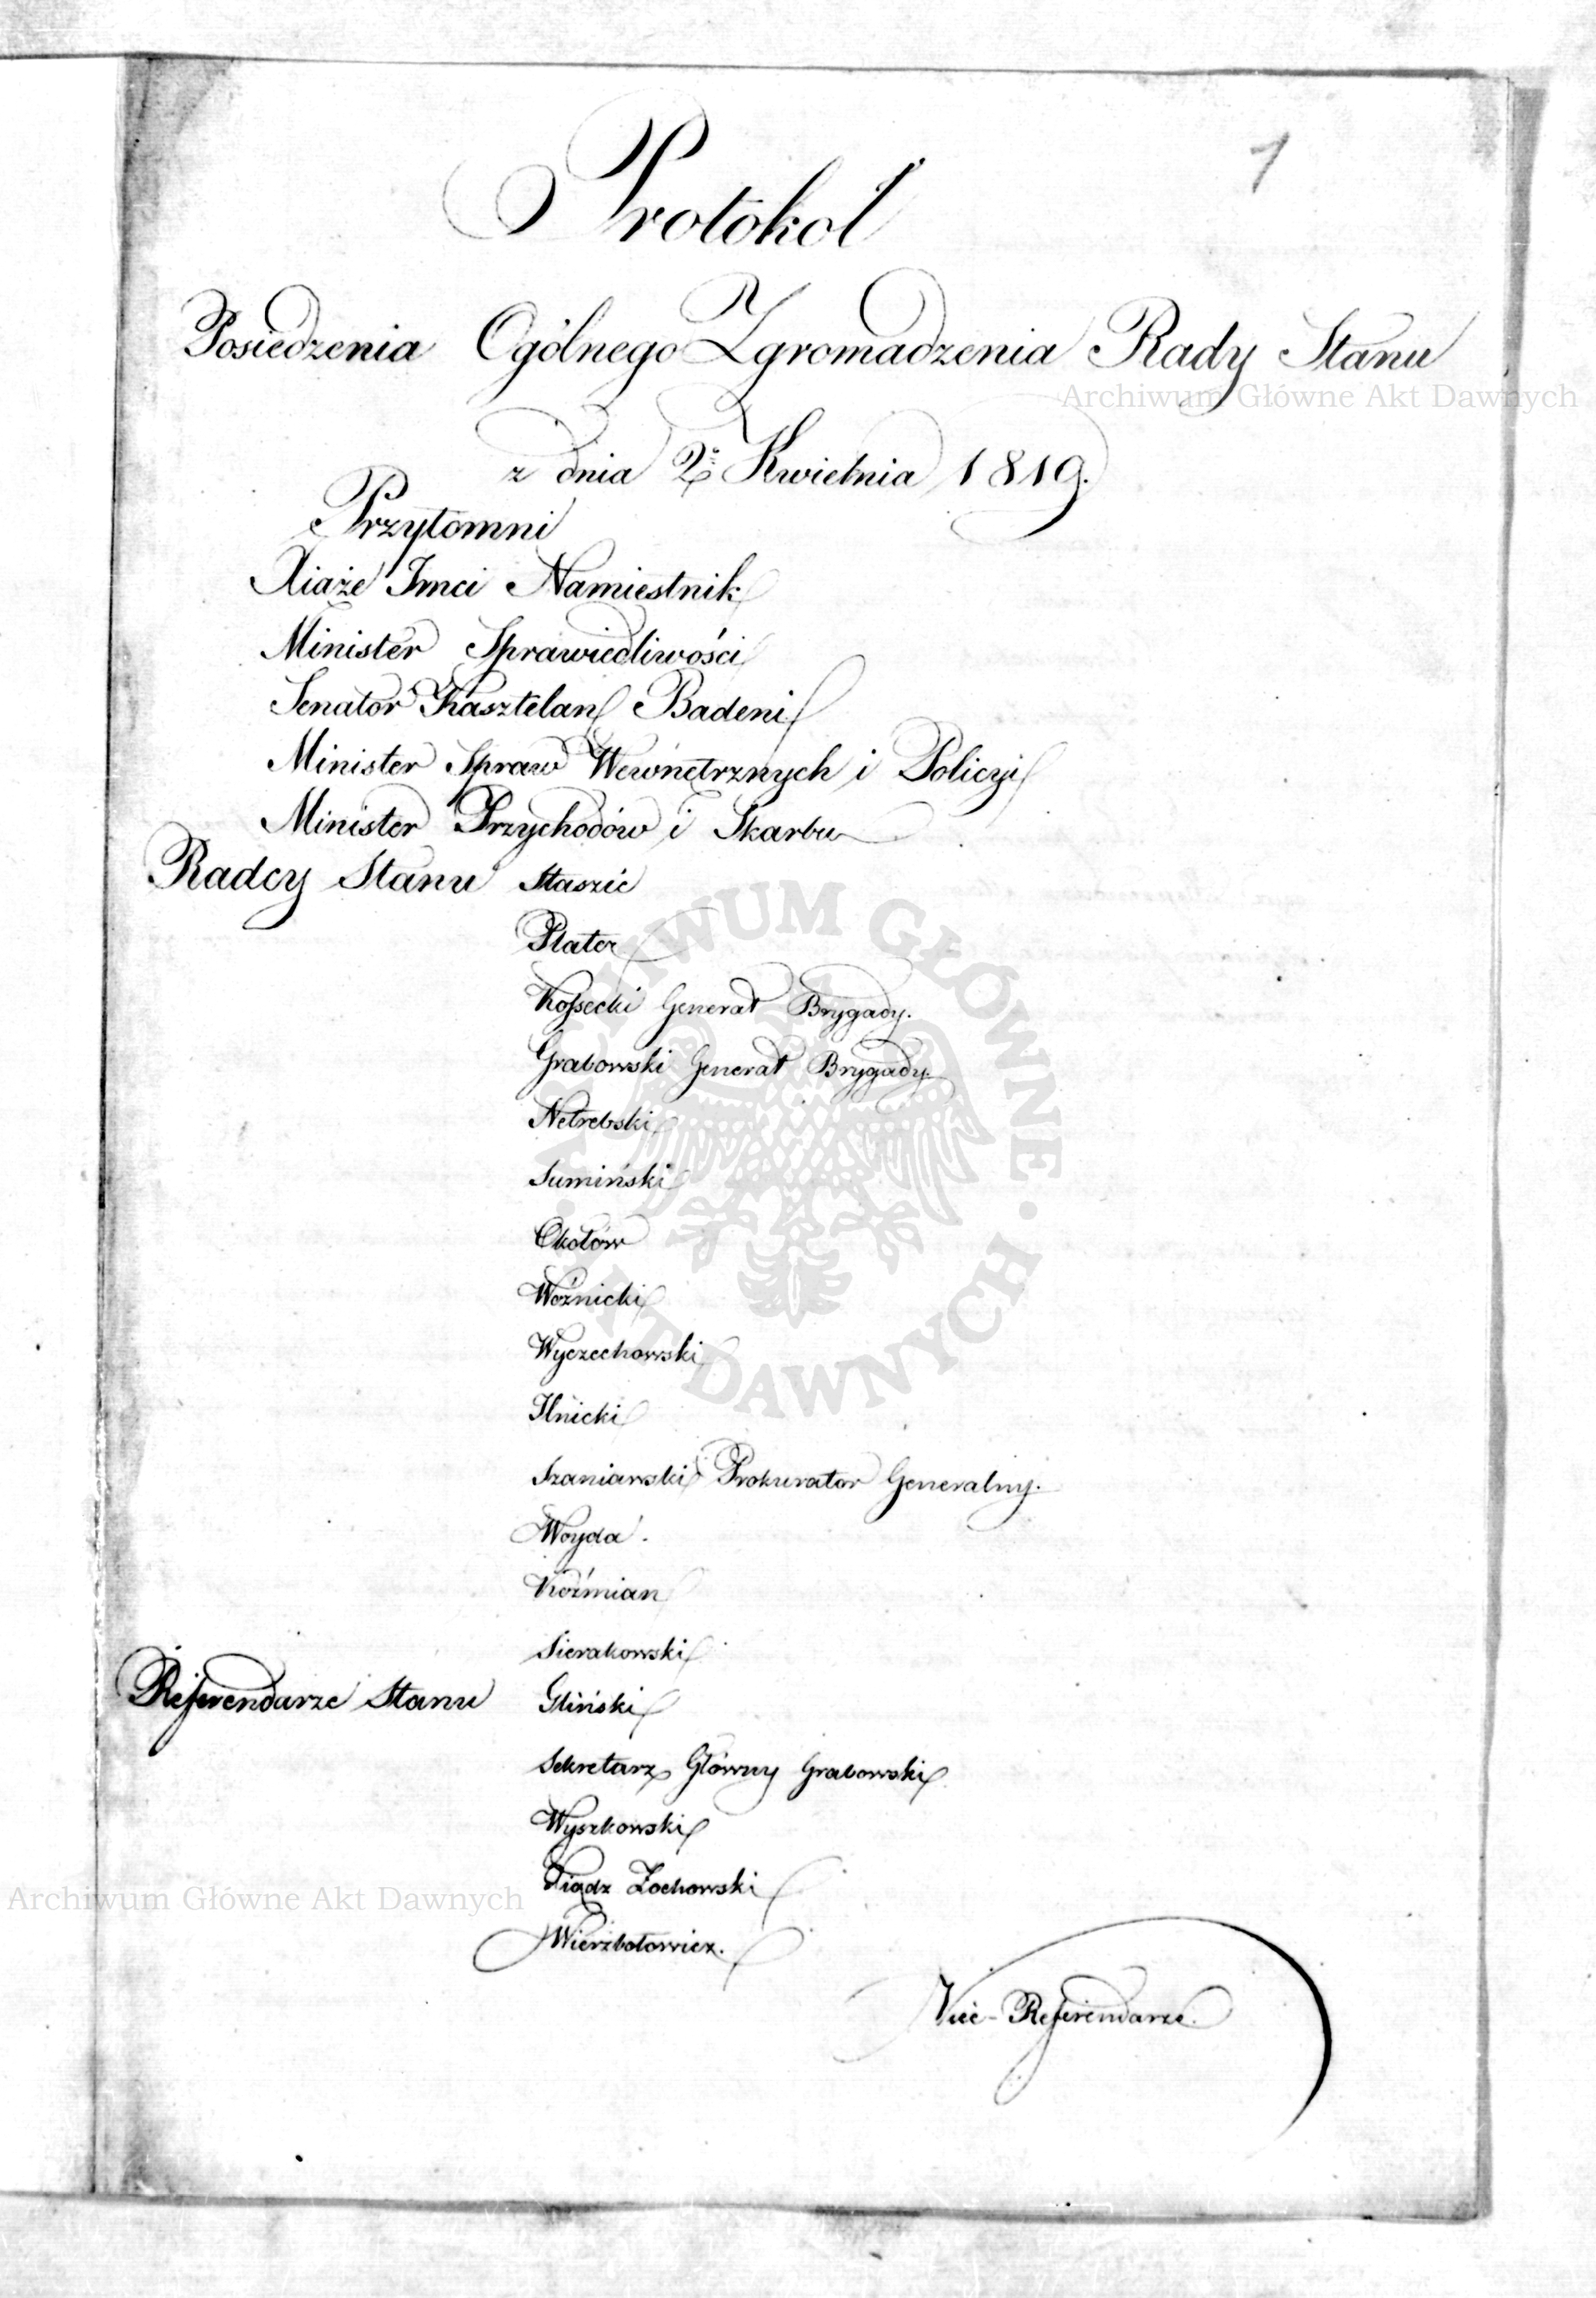 1
Protokół
Posiedzenia Ogólnego Zgromadzenia Rady Stanu
Archiwum Główne Akt Dawnych
z dnia 2º Kwietnia 1819.
Przytomni
Xiąże Imci Namiestnik
Minister Sprawiedliwości
Senator Kasztelan Badeni
Minister Spraw Wewnętrznych i Policyi
Minister Przychodów i Skarbu
Radcy Stanu Staszic
Plater
Kossecki Generał Brygady.
Grabowski Generał Brygady.
Netrebski
Sumiński
Okołów
Woźnicki
Wyczechowski
Ilnicki
Szaniawski Prokurator Generalny.
Woyda.
Koźmian
Sierakowski
Referendarze Stanu Gliński
Sekretarz Główny Grabowski
Wyszkowski
Xiądz Żochowski
Wierzbołowicz.
Vice-Referendarze.
ARCHIWUM GŁÓWNE AKT DAWNYCH
Archiwum Główne Akt Dawnych